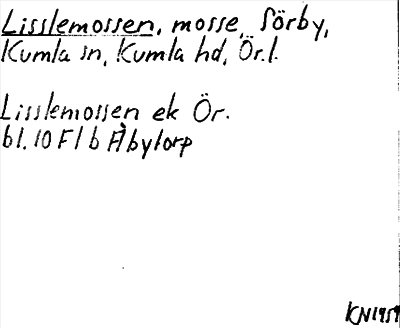 Lisslemossen, mosse, Sörby,
Kumla sn, Kumla hd, Ör.l.
Lisslemossen ek Ör.
bl. 10 F1b Åbytorp
KN1959